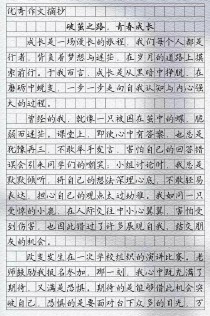 优秀作文摘抄
破茧之路，青春成长
成长是一场漫长的旅程，我们每个人都是
行者，背负着梦想与迷茫，在岁月的道路上摸
索前行。于我而言，成长是从黑暗中挣脱，在
磨砺中蜕变，一步一步走向自我认知与内心强
大的过程。
曾经的我，就像一只被困在茧中的蝶，脆
弱而迷茫。课堂上，即使心中有答案，也总是
犹豫再三，不敢举手发言，害怕自己的回答错
误会引来同学们的嘲笑。小组讨论时，我总是
默默倾听，将自己的想法深埋心底，不敢轻易
表达，担心自己的观点太过幼稚。我如同一只
受惊的小鹿，在人际交往中小心翼翼，害怕受
到伤害，也因此错过了许多展现自我、结交朋
友的机会。
改变发生在一次学校组织的演讲比赛。老
师鼓励我报名参加，那一刻，我心中既充满了
期待，又满是恐惧。期待的是能够借此机会突
破自己，恐惧的是要面对台下众多的目光，万